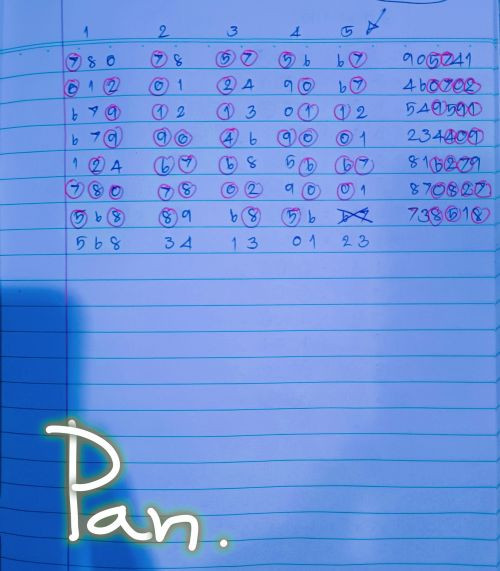 1 2 3 4 5
780 78 57 56 67 905741
012 01 24 90 67 460702
679 12 13 01 12 549591
679 90 46 90 01 234409
124 67 68 56 67 816279
780 78 02 90 01 870827
568 89 68 56 67 738518
568 34 13 01 23
Pan.